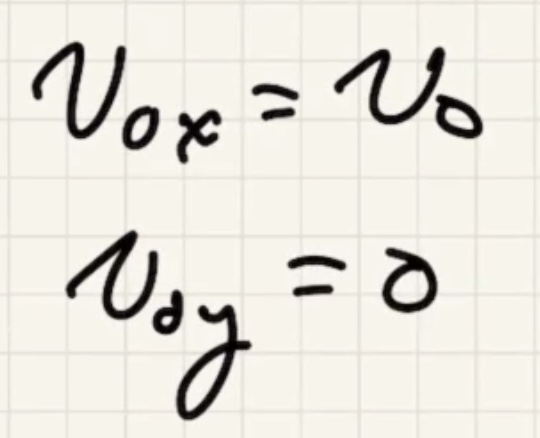 v₀ₓ = v₀
v₀y = 0